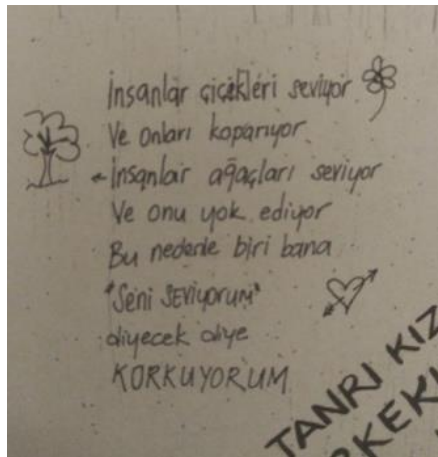 İnsanlar çiçekleri seviyor
Ve onları koparıyor
İnsanlar ağaçları seviyor
Ve onu yok ediyor
Bu nedenle biri bana
"Seni SEViyorum"
diyecek diye
KORKUYORUM
TANRI KIZ